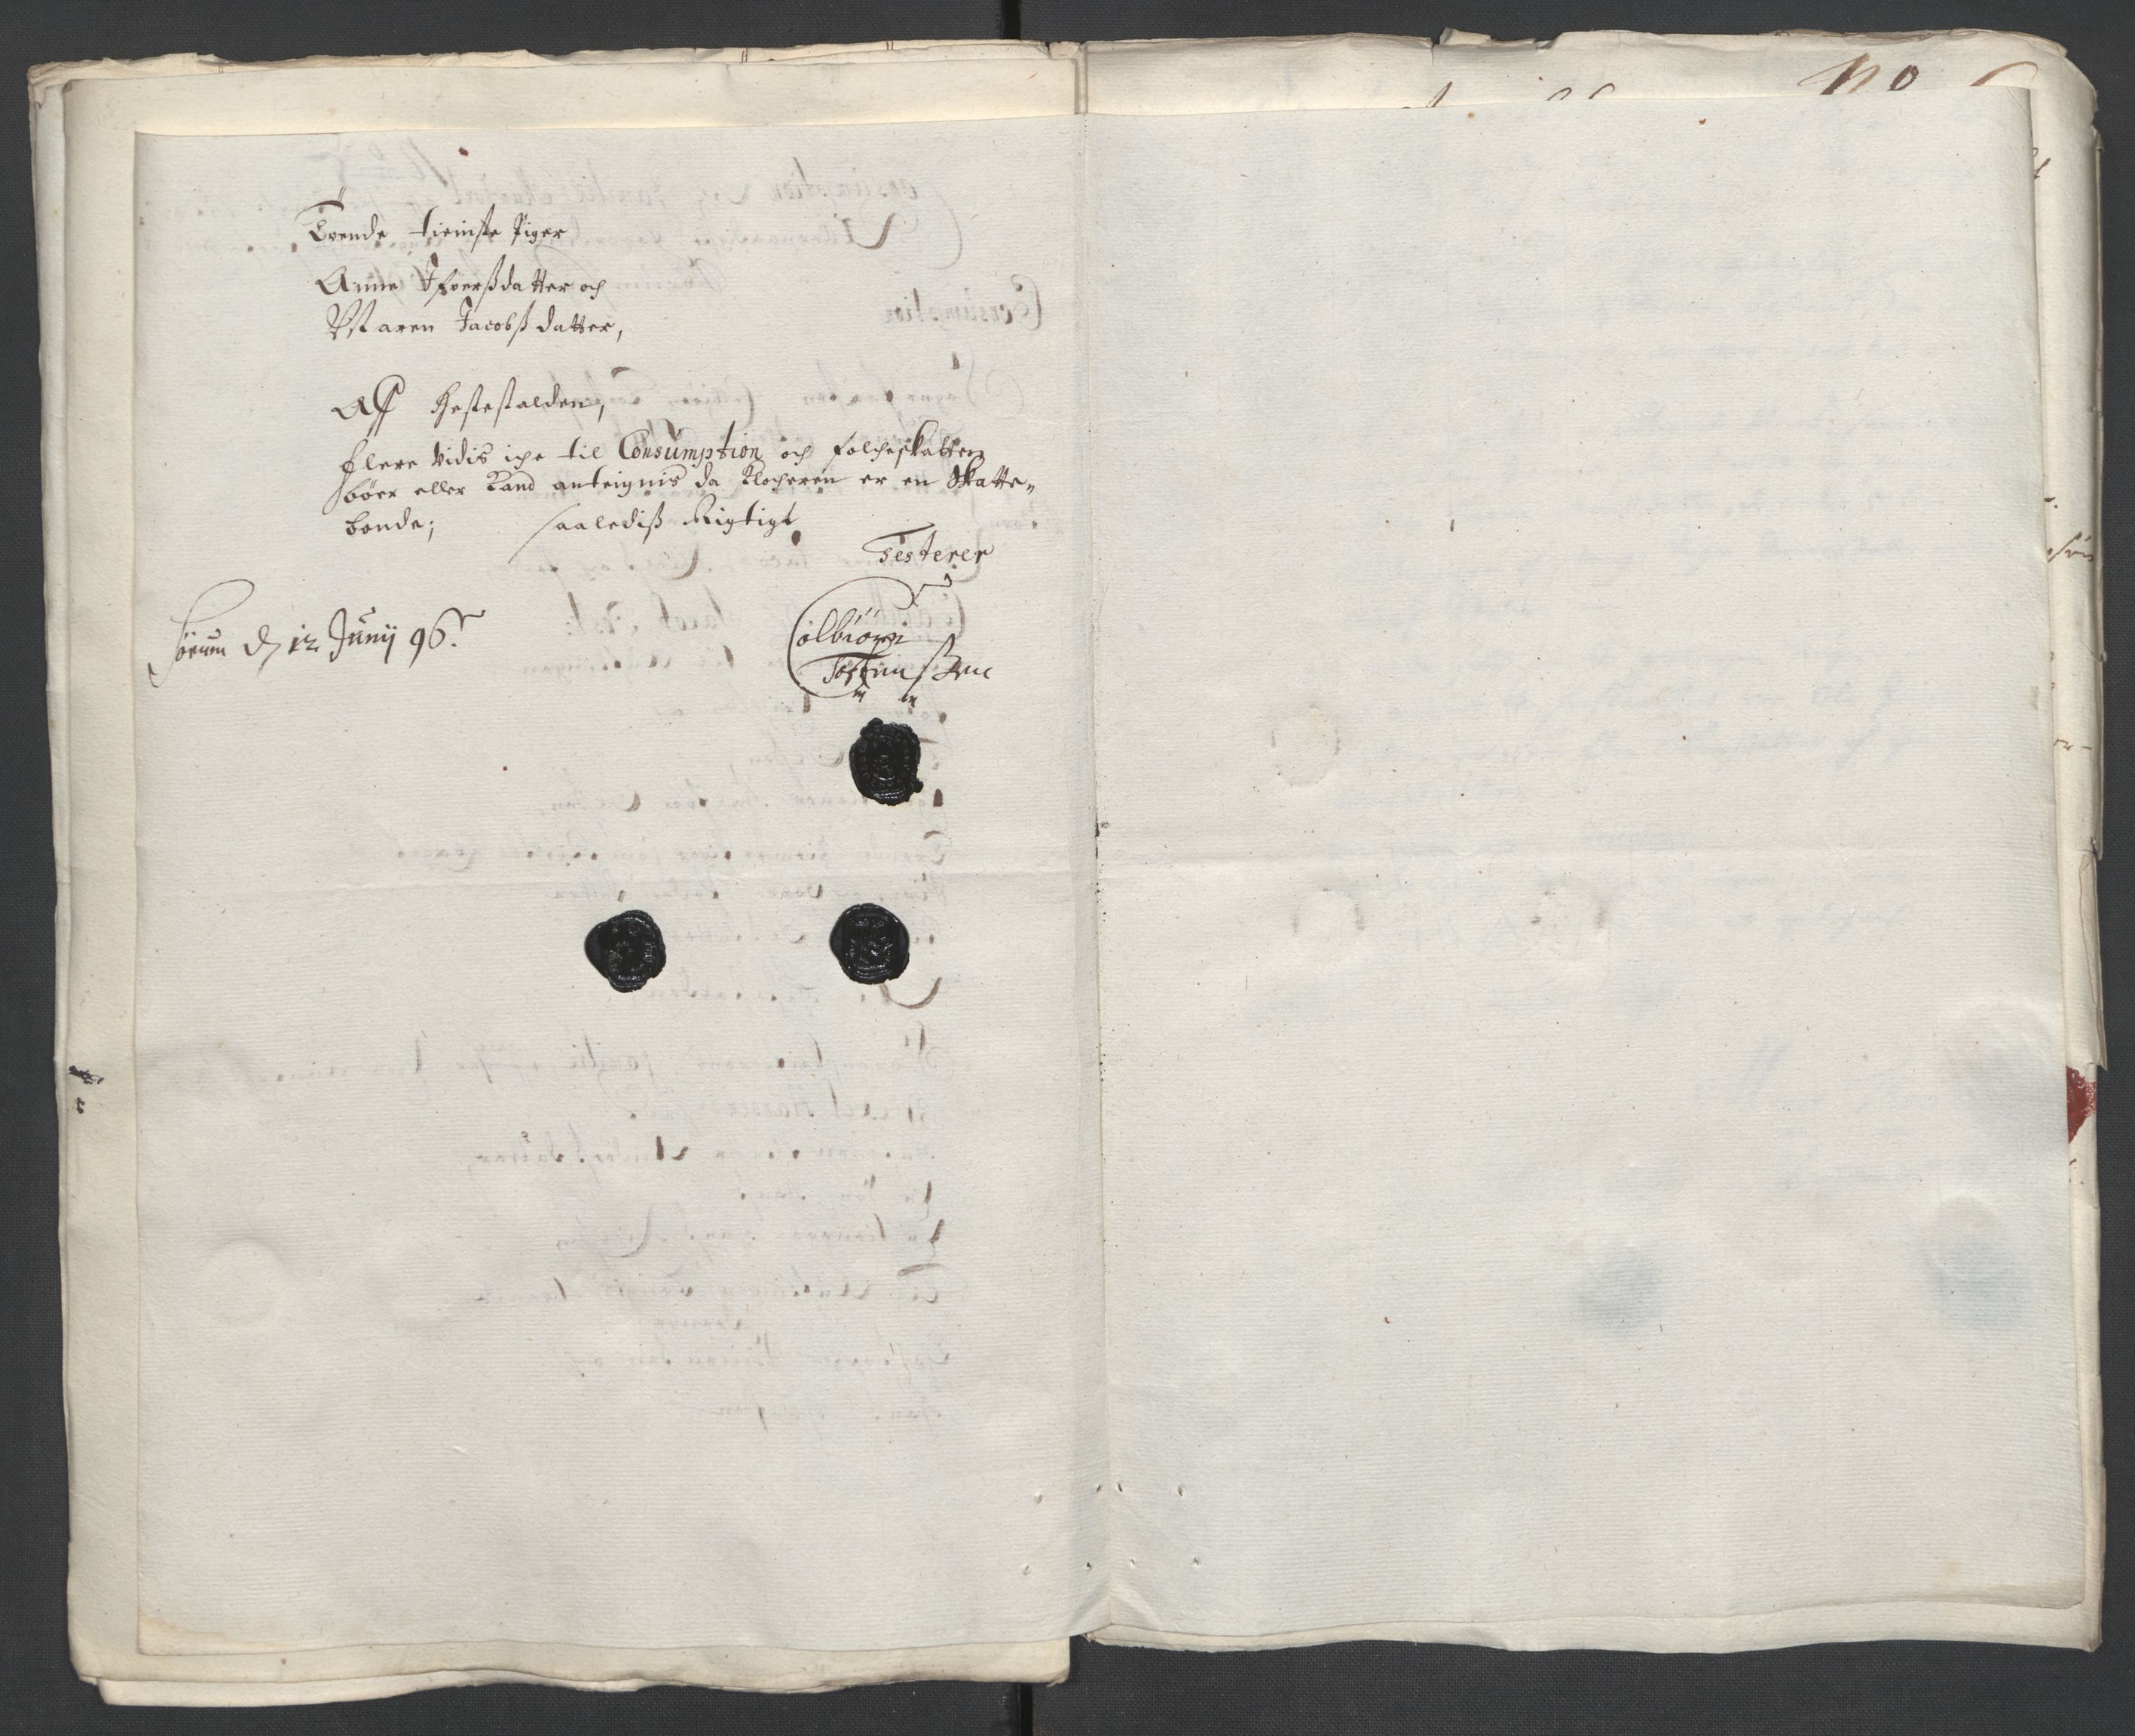 Tvende tieniste Piger
Anne Ifverßdatter och
Maren Jacobß datter,
Aff Hestestalden,
flere vidis iche til Consumption och folcheskatten
bøer eller Kand anteignis da Klocheren er en Skatte„
bonde; saalediß Rigtigt
Testerer
Sørum d. 12 Junij 96.
Colbiørn
Torstenßen